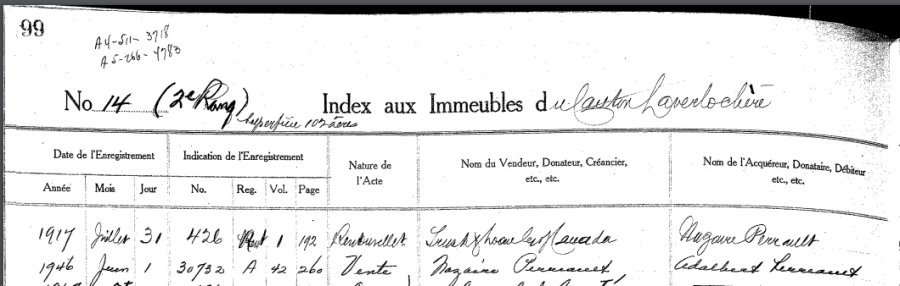 99
A4-511-3718
A5-266-4783
No 14 (2e Rang) Index aux Immeubles du Canton Laverlochère
Superficie 102 acres
Date de l'Enregistrement Indication de l'Enregistrement Nature de l'Acte Nom du Vendeur, Donateur, Créancier, etc., etc. Nom de l'Acquéreur, Donataire, Débiteur etc., etc.
Année Mois Jour No. Reg. Vol. Page
1917 Juillet 31 426 1 192 Nazaire Perrault
1946 Juin 1 30732 A 42 260 Vente Nazaire Perreault Adalbert Perreault